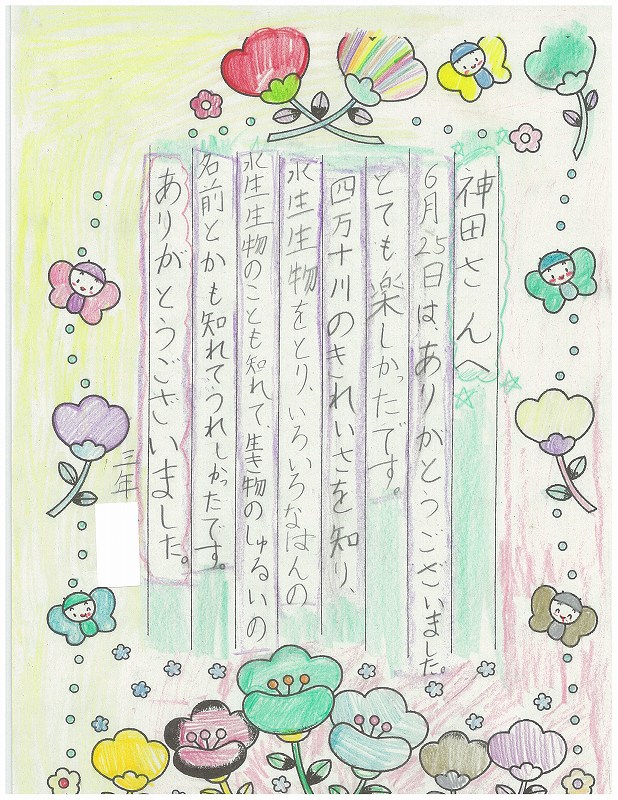 神田さんへ
6月25日は、ありがとうございました。
とても楽しかったです。
四万十川のきれいさを知り、
水生生物をとり、いろいろなはんの
水生生物のことも知れて、生き物のしゅるいの
名前とかも知れてうれしかったです。
ありがとうございました。
三年